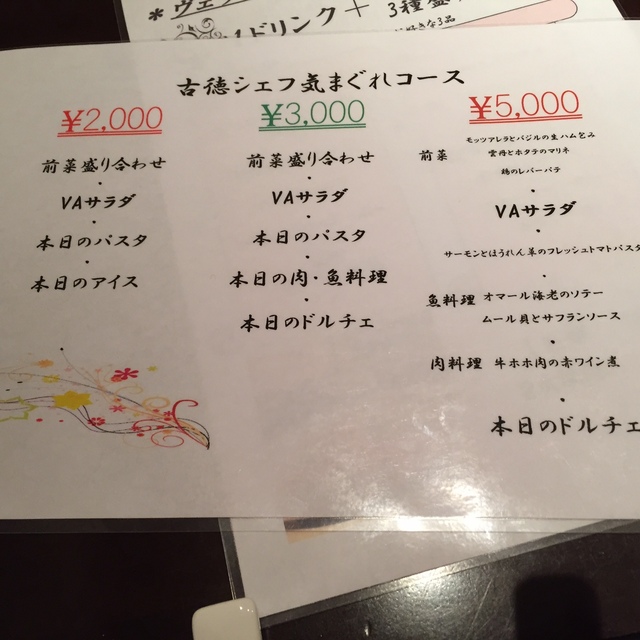 * ヴェ
1ドリンク + 3種盛
好きな3品
古徳シェフ気まぐれコース
¥2,000
前菜盛り合わせ
・
VAサラダ
・
本日のパスタ
・
本日のアイス
¥3,000
前菜盛り合わせ
・
VAサラダ
・
本日のパスタ
・
本日の肉・魚料理
・
本日のドルチェ
¥5,000
前菜 モッツアレラとバジルの生ハム包み
雲丹とホタテのマリネ
鶏のレバーパテ
・
VAサラダ
・
サーモンとほうれん草のフレッシュトマトパスタ
・
魚料理 オマール海老のソテー
ムール貝とサフランソース
・
肉料理 牛ホホ肉の赤ワイン煮
・
本日のドルチェ